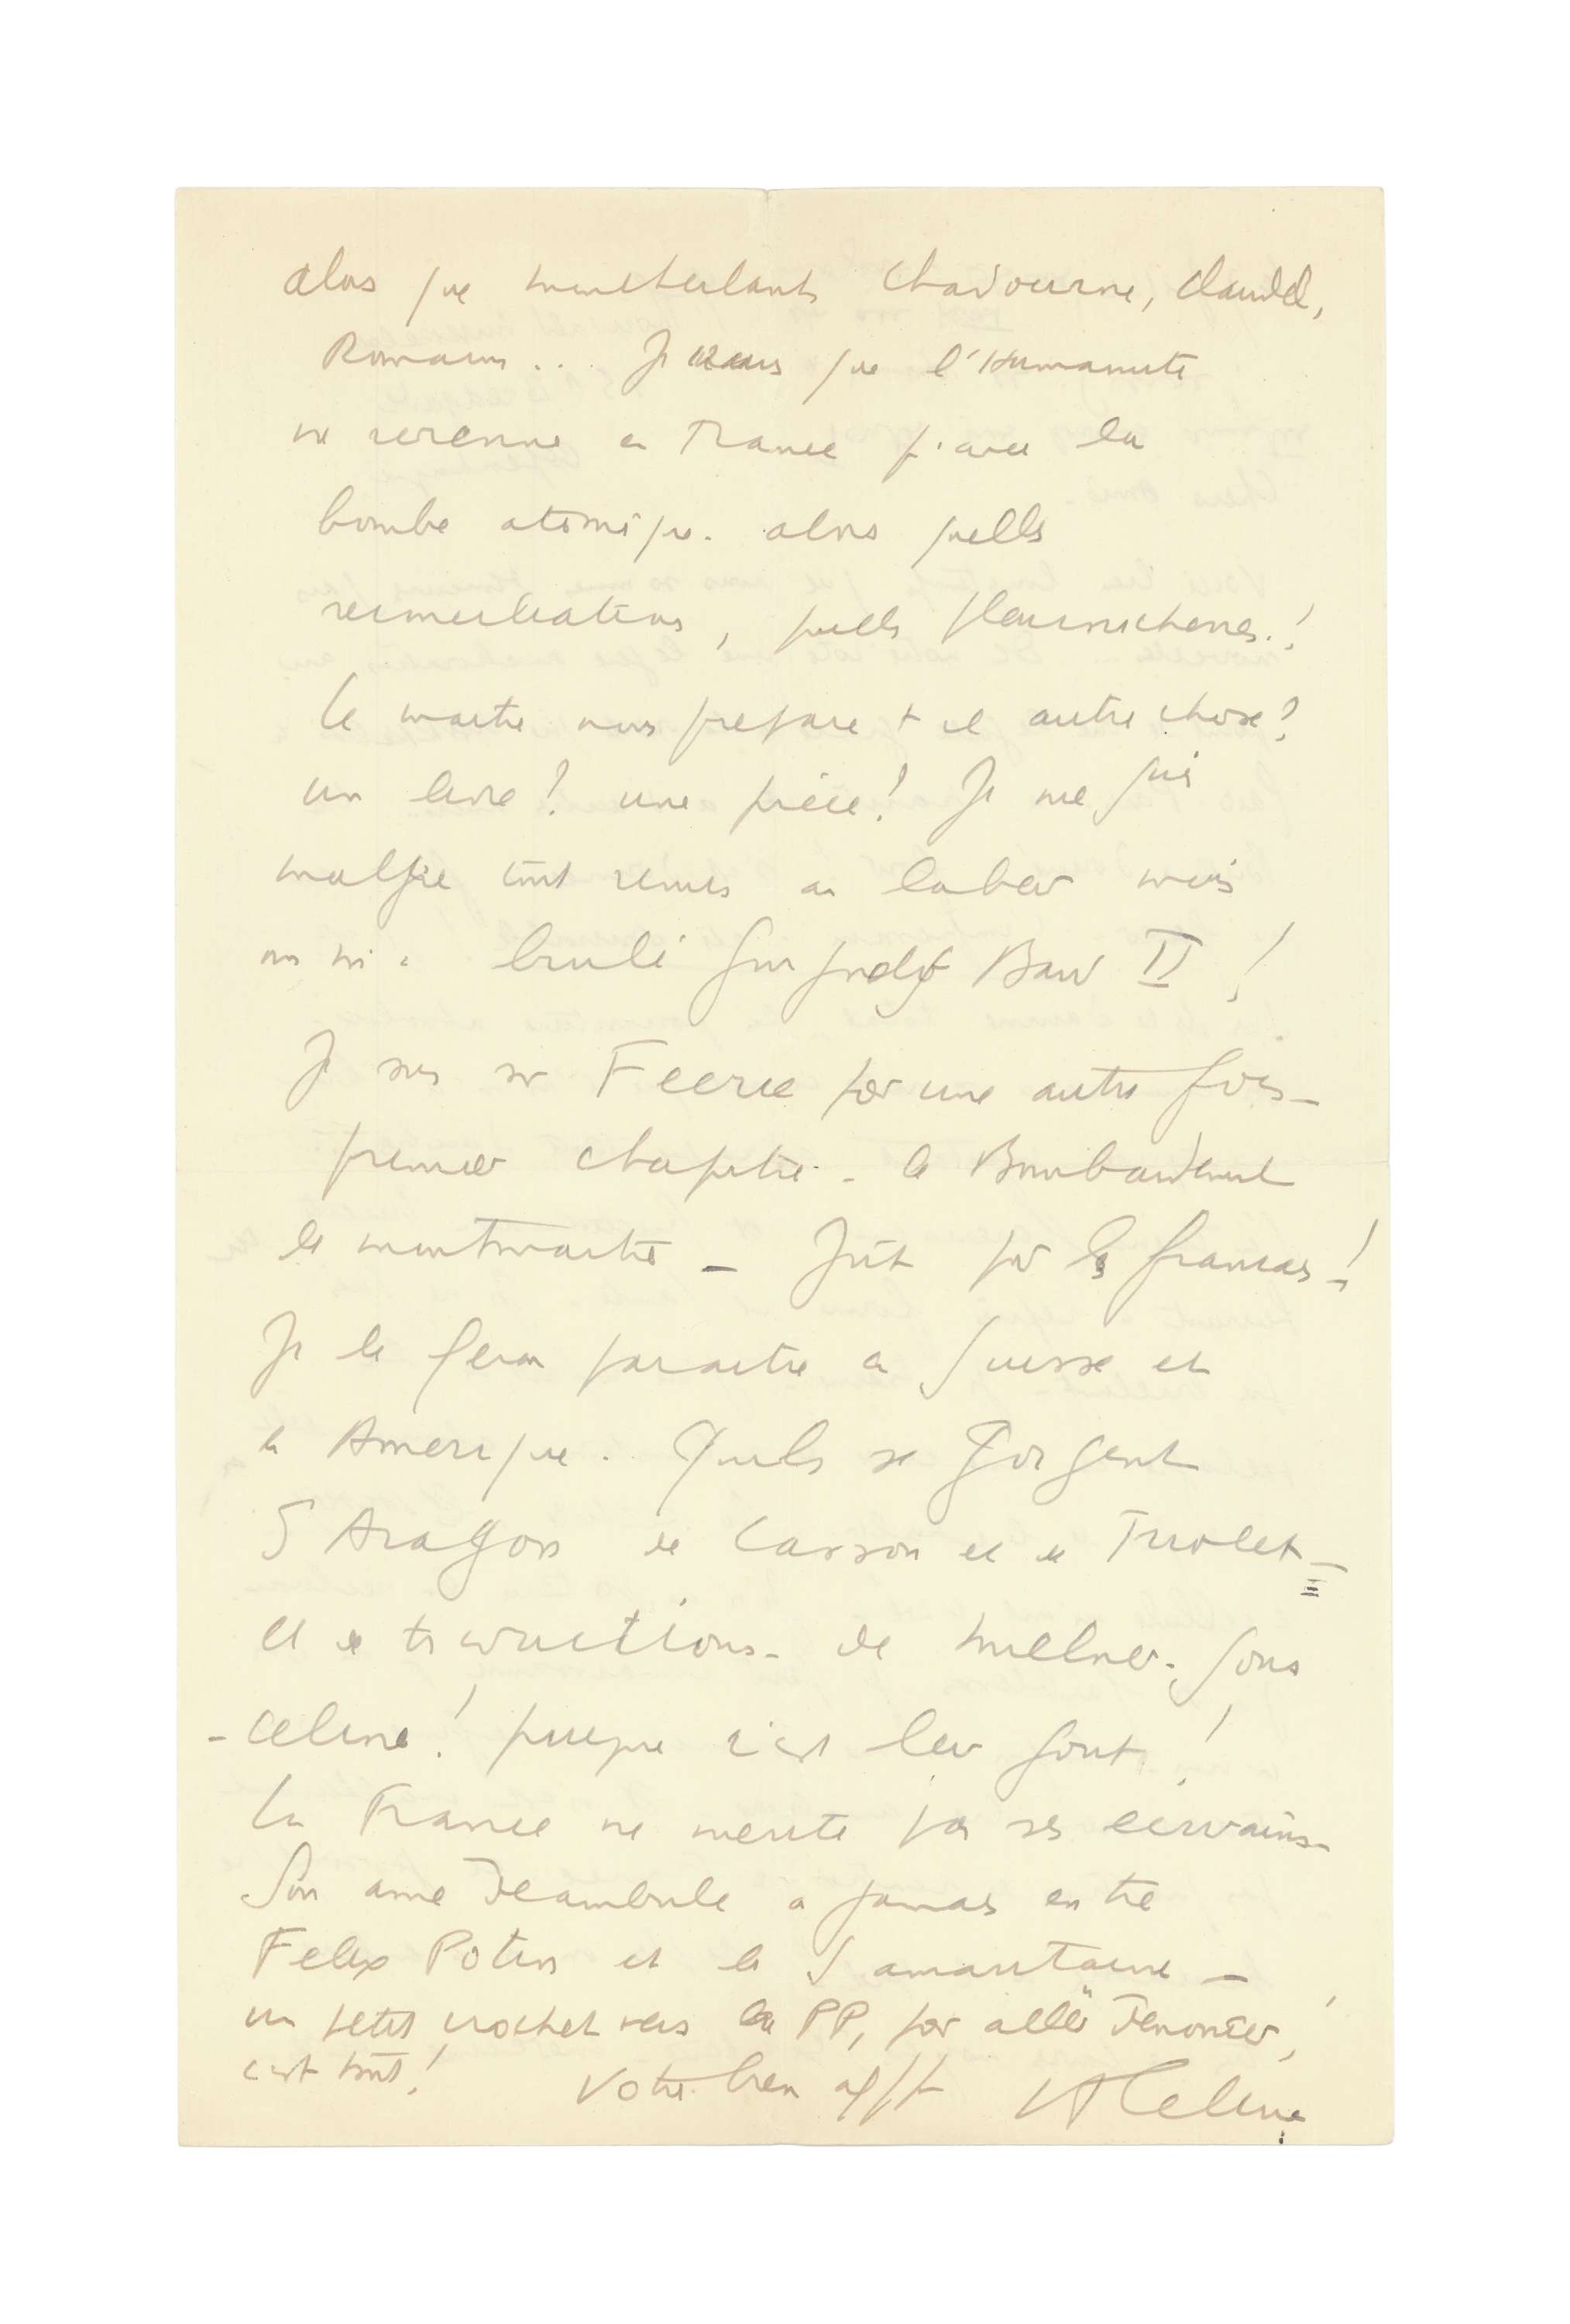 alors que Montherlant, Chadourne, Claudel,
Romains... Je crains que l'Humanité
ne revienne en France qu'avec la
bombe atomique. alors quelles
reconciliations, quelles pleurnicheries!
Le maitre nous prepare t il autre chose?
un livre? une pièce? Je me suis
malgré tout remis au labeur mais
on m'a brulé Guignol's Band II!
Je suis sur Feerie pour une autre fois -
premier chapitre - le Bombardement
de Montmartre - Pas pour les francais -!
Je le ferai paraitre en Suisse et
en Amerique. Qu'ils se gorgent
d'Aragon de Cassou et de Triolet -
et de traductions - de Miller. Sous
- Celine! puisque c'est leur gout!
La France ne merite pas ses ecrivains -
Son ame deambule a jamais entre
Felix Potin et la Samaritaine -
un petit crochet vers la PP, pour aller denoncer,
c'est tout! Votre bien afft LF Celine